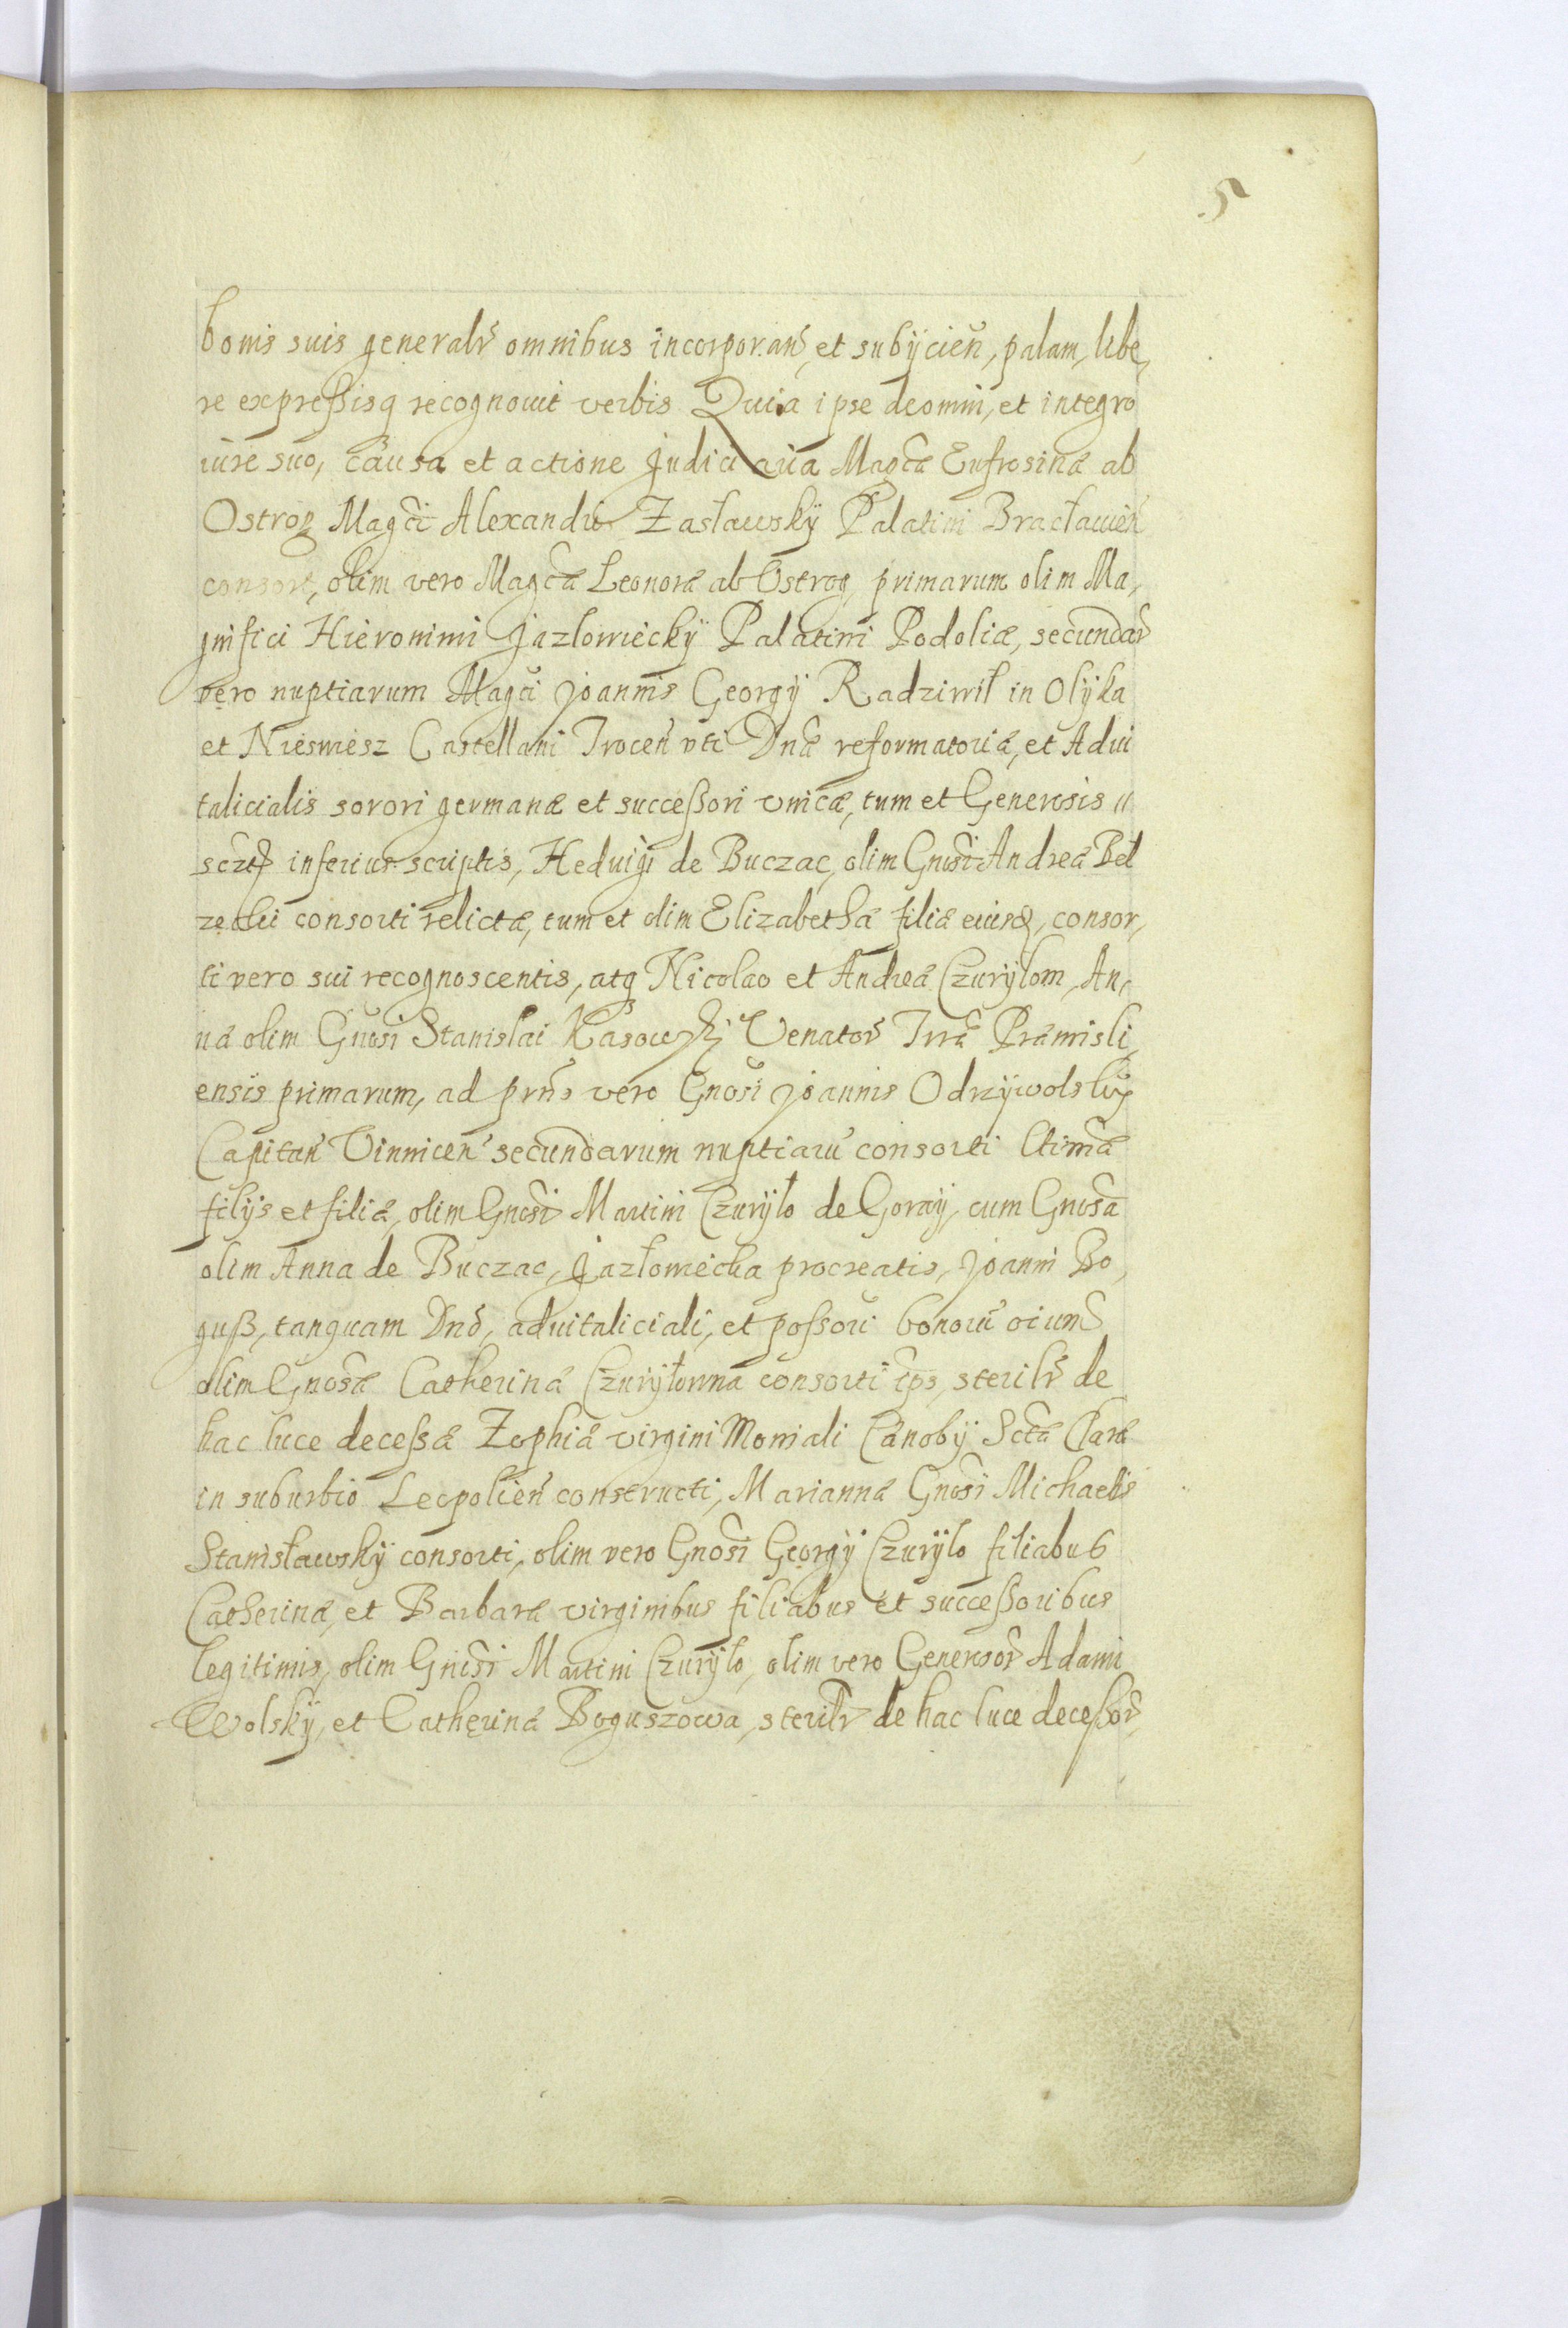 5
bonis suis generalr omnibus incorporan, et subÿcien, palam, libe,
re expreßisq recognouit verbis Quia ipse deomni, et integro
iure suo, causa et actione Judici aria Magcæ Eufrosinæ ab
Ostrog Magci Alexandri Zasławskÿ Palatini Bracławien
consort, olim vero Magcæ Leonoræ ab Ostrog, primarum olim Ma,
gnifici Hieronimi Jazłowieckÿ Palatini Podoliæ, secundar
vero nuptiarum Magci Joannis Georgÿ Radziwił in Olÿka
et Nieswiesz Castellani Trocen vti Dnæ reformatoriæ, et Adui
talicialis sorori germanæ et succeßori vnicæ, tum et Generosis
inferius scriptis, Heduigi de Buczac, olim Gnosi Andreæ Beł
zecki consorti relictæ, tum et olim Elizabethæ filiæ eiusd, consor,
ti vero sui recognoscentis, atq Nicolao et Andreæ Czuryłom, An,
næ olim Gnosi Stanislai Kasowski Venator Trræ Præmisli,
ensis primarum, ad prns vero Gnosi Joannis Odrzÿwolskÿ
Capitan Vinnicen secundarum nuptiaru consorti ltimæ
filÿs et filiæ, olim Gnosi Martini Czurÿło de Goraÿ, cum Gnosa
olim Anna de Buczac, Jazłowiecka procreatis, Joanni Bo,
guß, tanquam Dno, aduitaliciali, et poßori bonoru oium
olim Gnosæ Catherinæ Czurÿłowna consorti ips, sterilr de
hac luce deceßæ Zophiæ virgini Moniali Cænobÿ Sctæ Claræ
in suburbio Leopolien constructi, Mariannæ Gnosi Michaelis
Stanisławskÿ consorti, olim vero Gnosi Georgÿ Czurÿło filiabus
Catherinæ, et Barbaræ virginibus filiabus et succeßoribus
legitimis, olim Gnosi Martini Czurÿło, olim vero Generosor Adami
Wolskÿ, et Catherinæ Boguszowa, sterilr de hac luce deceßor,